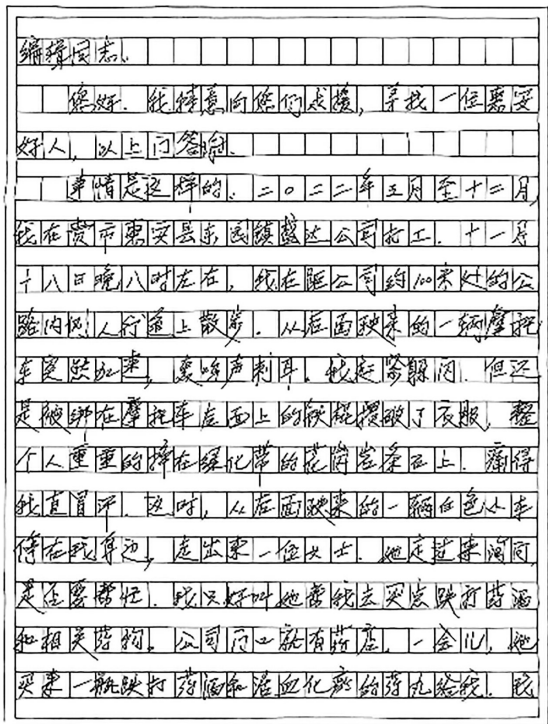 编辑同志：
您好。我特意向您们求援，寻找一位惠安
好人，以上门答谢。
事情是这样的。二〇二二年五月至十二月，
我在贵市惠安县东园镇盛达公司打工。十一月
十八日晚八时左右，我在距公司约100米处的公
路内侧人行道上散步。从后面驶来的一辆摩托
车突然加速，轰鸣声刺耳。我赶紧躲闪。但还
是被绑在摩托车后面上的铁棍撕破了衣服，整
个人重重的摔在绿化带的花岗岩条石上。痛得
我直冒汗。这时，从后面驶来的一辆白色小车
停在我身边，走出来一位女士。她走过来询问，
是否要帮忙。我只好叫她帮我去买点跌打药酒
和相关药物。公司门口就有药店。一会儿，她
买来一瓶跌打药酒和活血化瘀的药丸给我。我